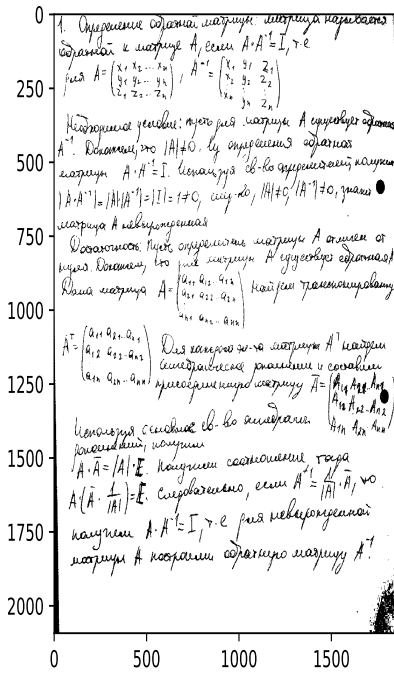 1. Определение обратной матрицы: матрица называется
обратной к матрице A, если A·A⁻¹=I, т.е
для A=(x₁ x₂...xₙ / y₁ y₂...yₙ / z₁ z₂...zₙ), A⁻¹=(x₁ y₁ z₁ / x₂ y₂ z₂ / xₙ yₙ zₙ)
Необходимое условие: пусть для матрицы A существует обратная
A⁻¹. Докажем, что |A|≠0. по определения обратной
матрицы A·A⁻¹=I. Используя св-во определителей получим
|A·A⁻¹|=|A||A⁻¹|=|I|=1≠0, |A|≠0, |A⁻¹|≠0, значит
матрица A невырожденная
Достаточность: Пусть определитель матрицы A отличен от
нуля. Докажем, что для матрицы A существует обратная A
Дана матрица A=(a₁₁ a₁₂...a₁ₙ / a₂₁ a₂₂...a₂ₙ / aₙ₁ aₙ₂...aₙₙ) Найдем транспонированную
Aᵀ=(a₁₁ a₂₁...aₙ₁ / a₁₂ a₂₂...aₙ₂ / a₁ₙ a₂ₙ...aₙₙ) Для каждого эл-та матрицы Aᵀ найдем
алгебраическое дополнение и составим
присоединенную матрицу Ā=(A₁₁ A₂₁...Aₙ₁ / A₁₂ A₂₂...Aₙ₂ / A₁ₙ A₂ₙ Aₙₙ)
Используя основное св-во алгебраич.
дополнений, получим
A·Ā=|A|·E. Получим соотношение тогда
A·(Ā·1/|A|)=E. Следовательно, если A⁻¹=1/|A|·Ā, то
получим A·A⁻¹=I, т.е для невырожденной
матрицы A построили обратную матрицу A⁻¹.
0
250
500
750
1000
1250
1500
1750
2000
0 500 1000 1500